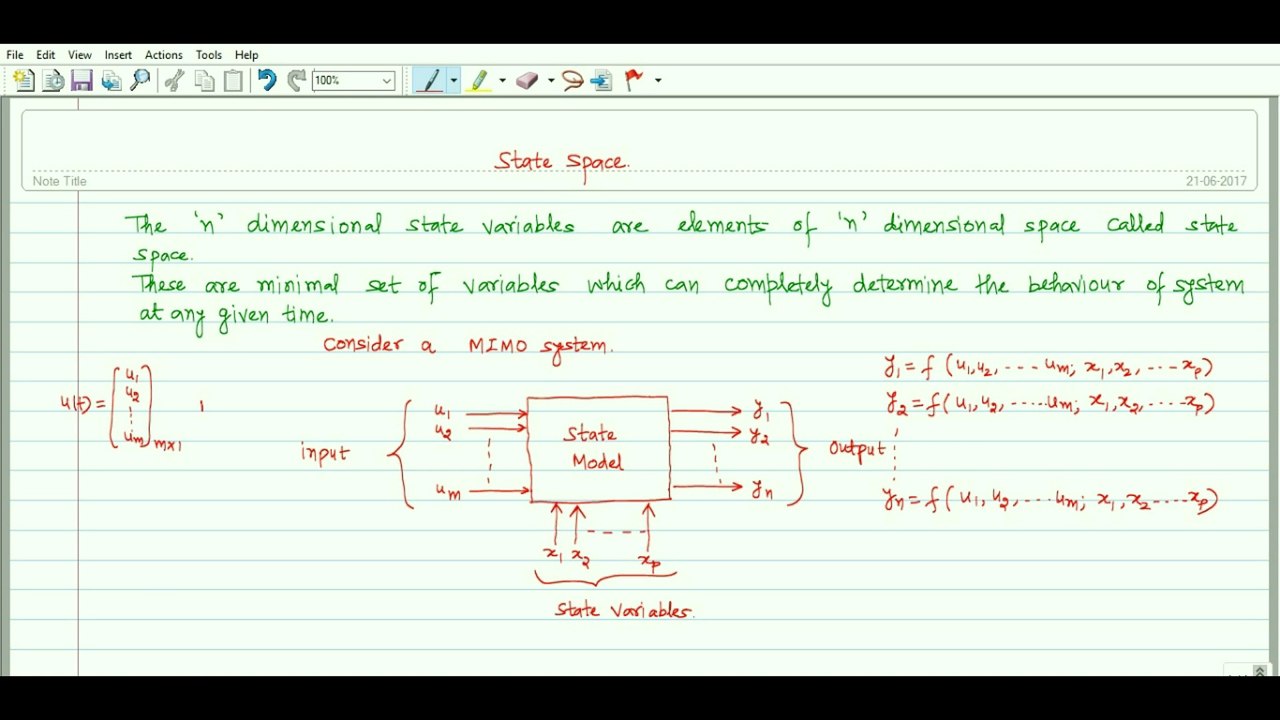 File Edit View Insert Actions Tools Help
100%
State Space.
Note Title
21-06-2017
The 'n' dimensional state variables are elements of 'n' dimensional space called state
space.
These are minimal set of variables which can completely determine the behaviour of system
at any given time.
Consider a MIMO system.
u(t) = [u1 u2 ⋮ um] mx1
input
u1
u2
um
State
Model
y1
y2
yn
output
x1 x2 ---- xp
State variables.
y1 = f (u1, u2, ---- um; x1, x2, ---- xp)
y2 = f (u1, u2, ----- um; x1, x2, ---- xp)
yn = f (u1, u2, ---- um; x1, x2 ---- xp)